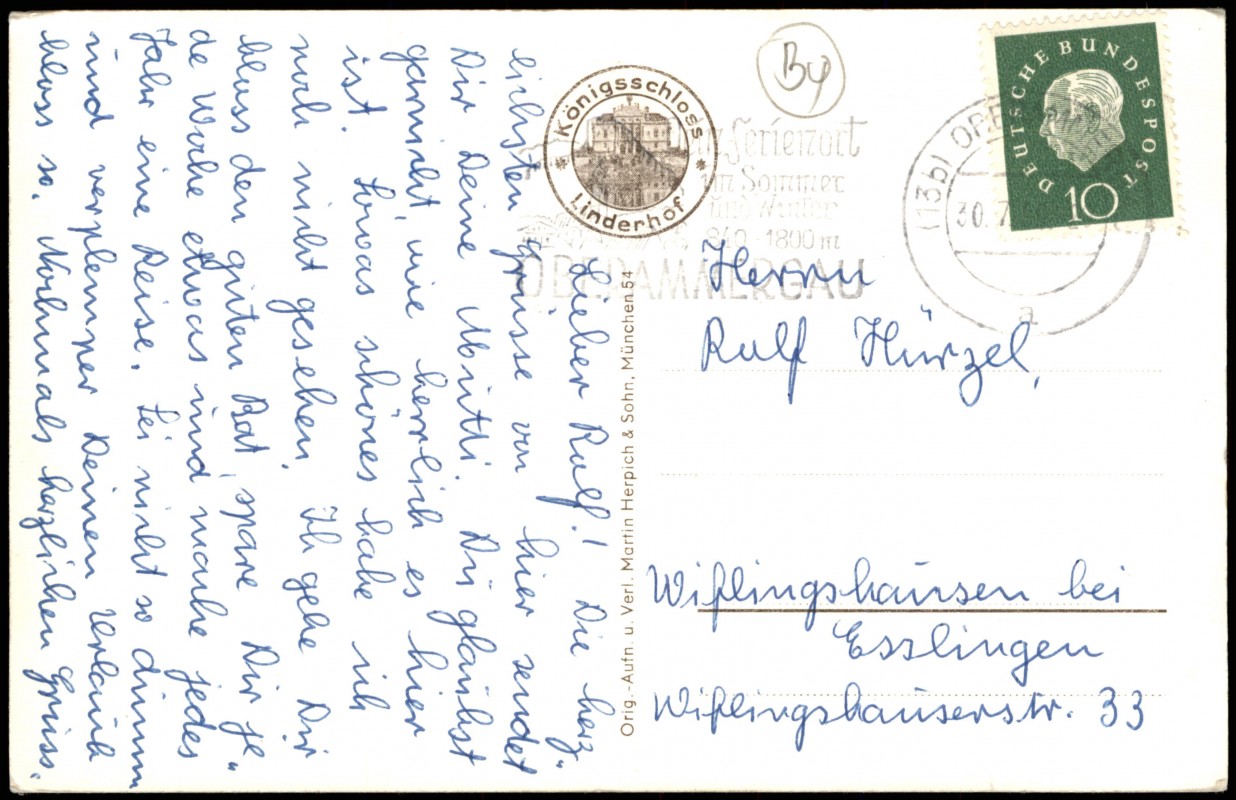 Lieber Rulf! Die herz„
lichsten Grüsse von hier sendet
Dir Deine Mutti. Du glaubst
garnicht, wie herrlich es hier
ist. Sowas schönes habe ich
noch nicht gesehen. Ich gebe Dir
bloss den guten Rat, spare Dir je„
de Woche etwas und mache jedes
Jahr eine Reise. Sei nicht so dumm
und verplemper Deinen Urlaub
bloss so. Nochmals herzlichen Gruss.
Königsschloss
Linderhof
Orig.-Aufn. u. Verl. Martin Herpich & Sohn, München 54
By
Ferienort
im Sommer
und Winter
840-1800 m
OBERAMMERGAU
(13b) OBE
30.7
a
DEUTSCHE BUNDESPOST
10
Herrn
Rulf Hürzel,
Wißlingshausen bei
Esslingen
Wißlingshauserstr. 33